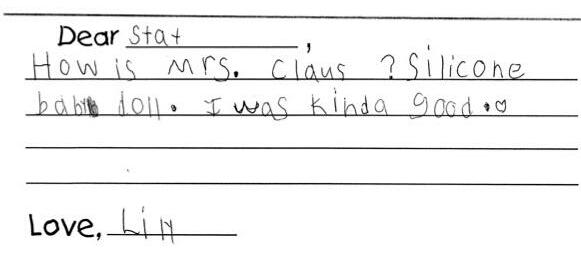 Dear Stat,
How is Mrs. Claus ? Silicone
baby doll. I was kinda good.♡
Love, Lin